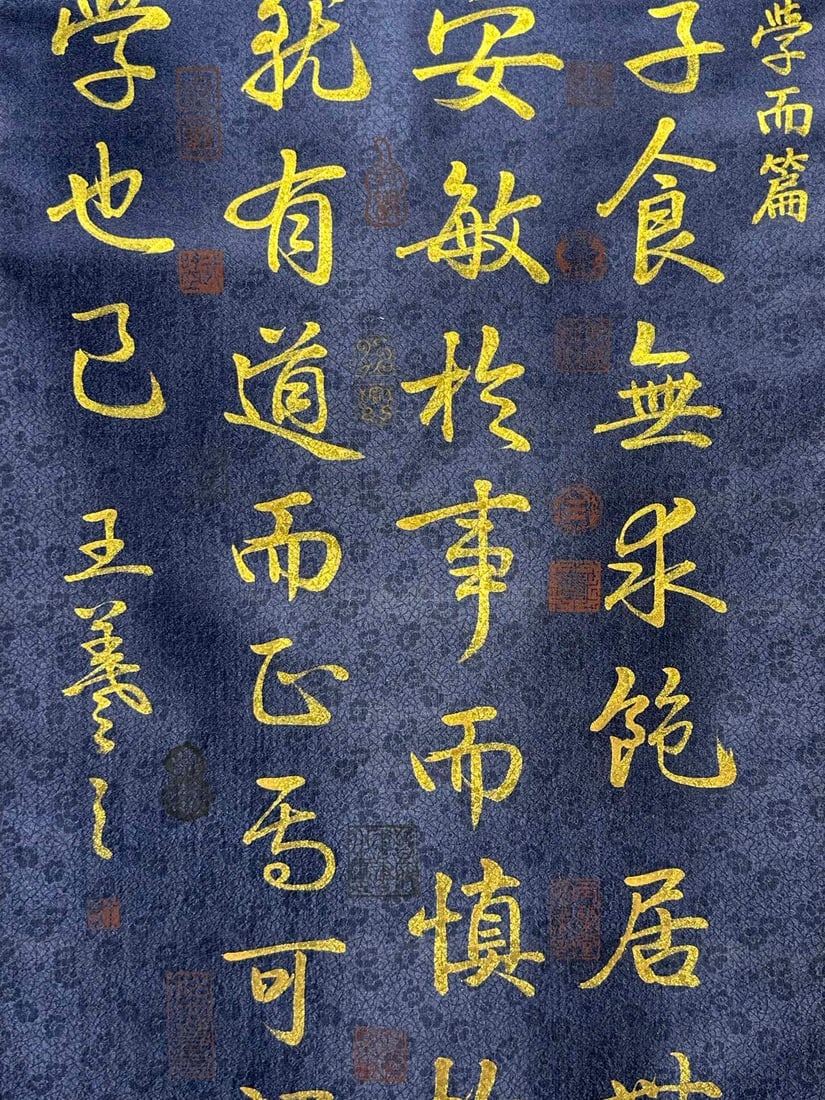 學而篇
子食無求飽居
安敏於事而慎
就有道而正焉可
学也已
王羲之